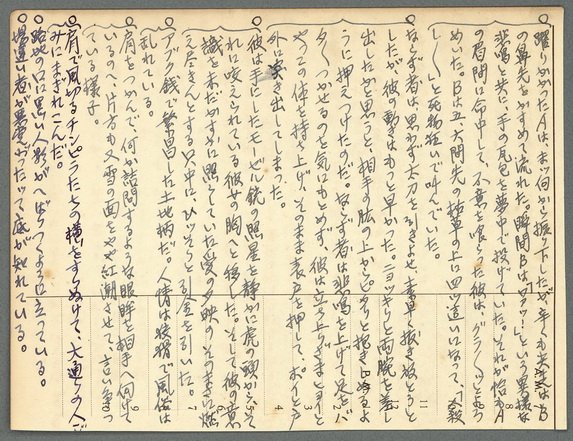 躍りかかったAは、
の鼻先をかすめて流れた。瞬間Bは「アッ！」という異様な
悲鳴と共に、手の瓦包を夢中で投げていた。それが恰もA
の眉間に命中して、不意を喰った彼は、グラ〱とよろ
めいた。Bは五六間先の枯草の上に四つ這いになって、「人殺
し〱」と死物狂いで叫んでいた。
ならず者は、思わず太刀を引きよせ、素早く振き放とうと
したが、彼の動きはもっと早かった。ニョッキリと両腕を差し
出したかと思うと、相手の肱の上からピタリと抱きしめるよ
うに押えつけたのだ。ならず者は悲鳴を上げて足をバ
タ〱つかせるのを気にもとめず、彼は立ち上りざまヒョイと
やつこの体を持ち上げ、そのまま表戸を押して、ポイと戸
外に突き出してしまった。
彼は手にしたモーゼル銃の照星を静かに虎の頭から、
れに咬えられている彼女の胸へと移した。そして彼の意
識を未だかすかに照らしていた愛の夕映の、そのまさに燃
え尽きんとする只中に、ひっそりと引金を引いた。
アブク銭で繁昌した土地柄だ。人情は狡猾で風俗は
乱れている。
肩をつかんで、何か詰問するような眼眸を相手へ向けて
いるのへ、片方も又雪の面をやや紅潮させて、言い争っ
ている様子。
肩で風切るチンピラたちの横をすりぬけて、大通りの人ご
みにまぎれこんだ。
路地の口に黒い人影がへばりつくように立っている。
場違い者が異虎がたって底が知れている。